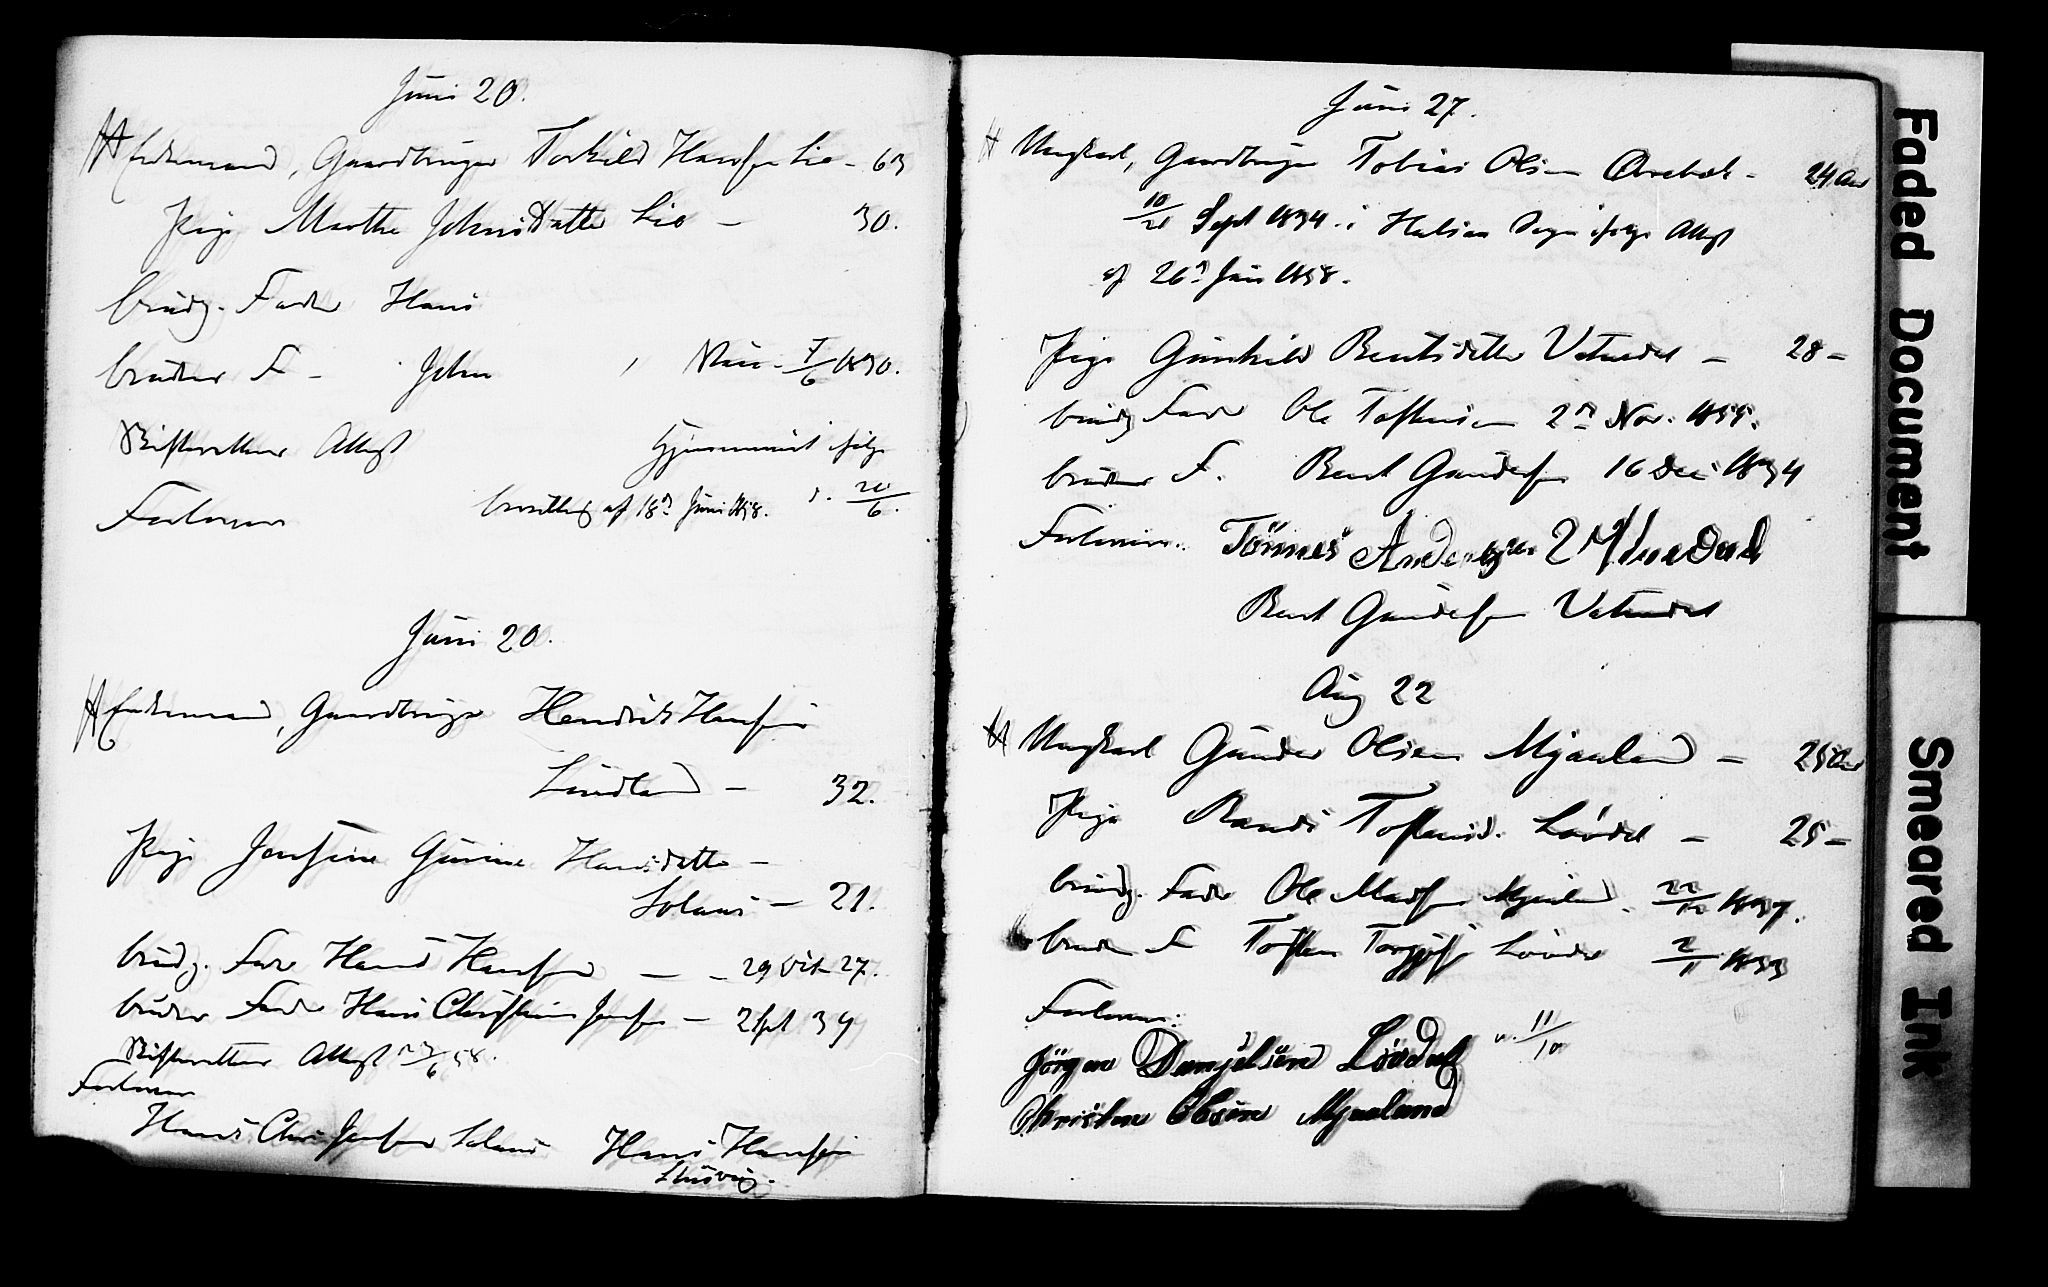 Juni 20.
Enkemand, Gaardbruger Torkild Hansen Lie - 63
Pige Marthe Johnsdatter Lie - 30.
brudg. Fader Hans
brudens F - John , 7/6 1830.
Skifterettens Attest Hjemmeviet ifølge
Forlovere bevilling af 18de Juni 1858. d. 20/6.
Juni 20.
Enkemand, Gaardbruger Hendrik Hansen
Lindland - 32.
Pige Josefine Gurine Hansdatter -
Solaas - 21.
brudg. Fader Hans Hansen - - 29 Oct 27.
brudens Fader Hans Christian Jensen - 2 Spt 39
Skifterettens Attest 58.
Forlovere
Hans Chr. Jensen Solaas Hans Hansen
Juni 27.
Ungkarl, Gaardbruger Tobias Olsen - 24 Aar
Sept 1834 i Sogn ifølge Attest
af 26de Juni 1858.
Pige Gunhild Bentsdatter Vatnedal - 28 -
brudg Fader Ole Tostensen 2de Nov. 1855.
brudens F. Bent Gundersen 16 Dec 1834
Forlovere. Tönnes Andersen
Bent Gundersen Vatnedal
Aug 22
Ungkarl Gunder Olsen Mjaaland - 25 Aar
Pige Randi Tostensd. Lövdal - 25 -
brudg. Fader Ole Madsen Mjaaland. 1837.
bruden F Tosten Torgjus Lövdal 2/11 1833
Forlovere:
Jörgen Danjelsen Lövdal 11/10
Christen Olsen Mjaaland
Faded Document
Smeared Ink